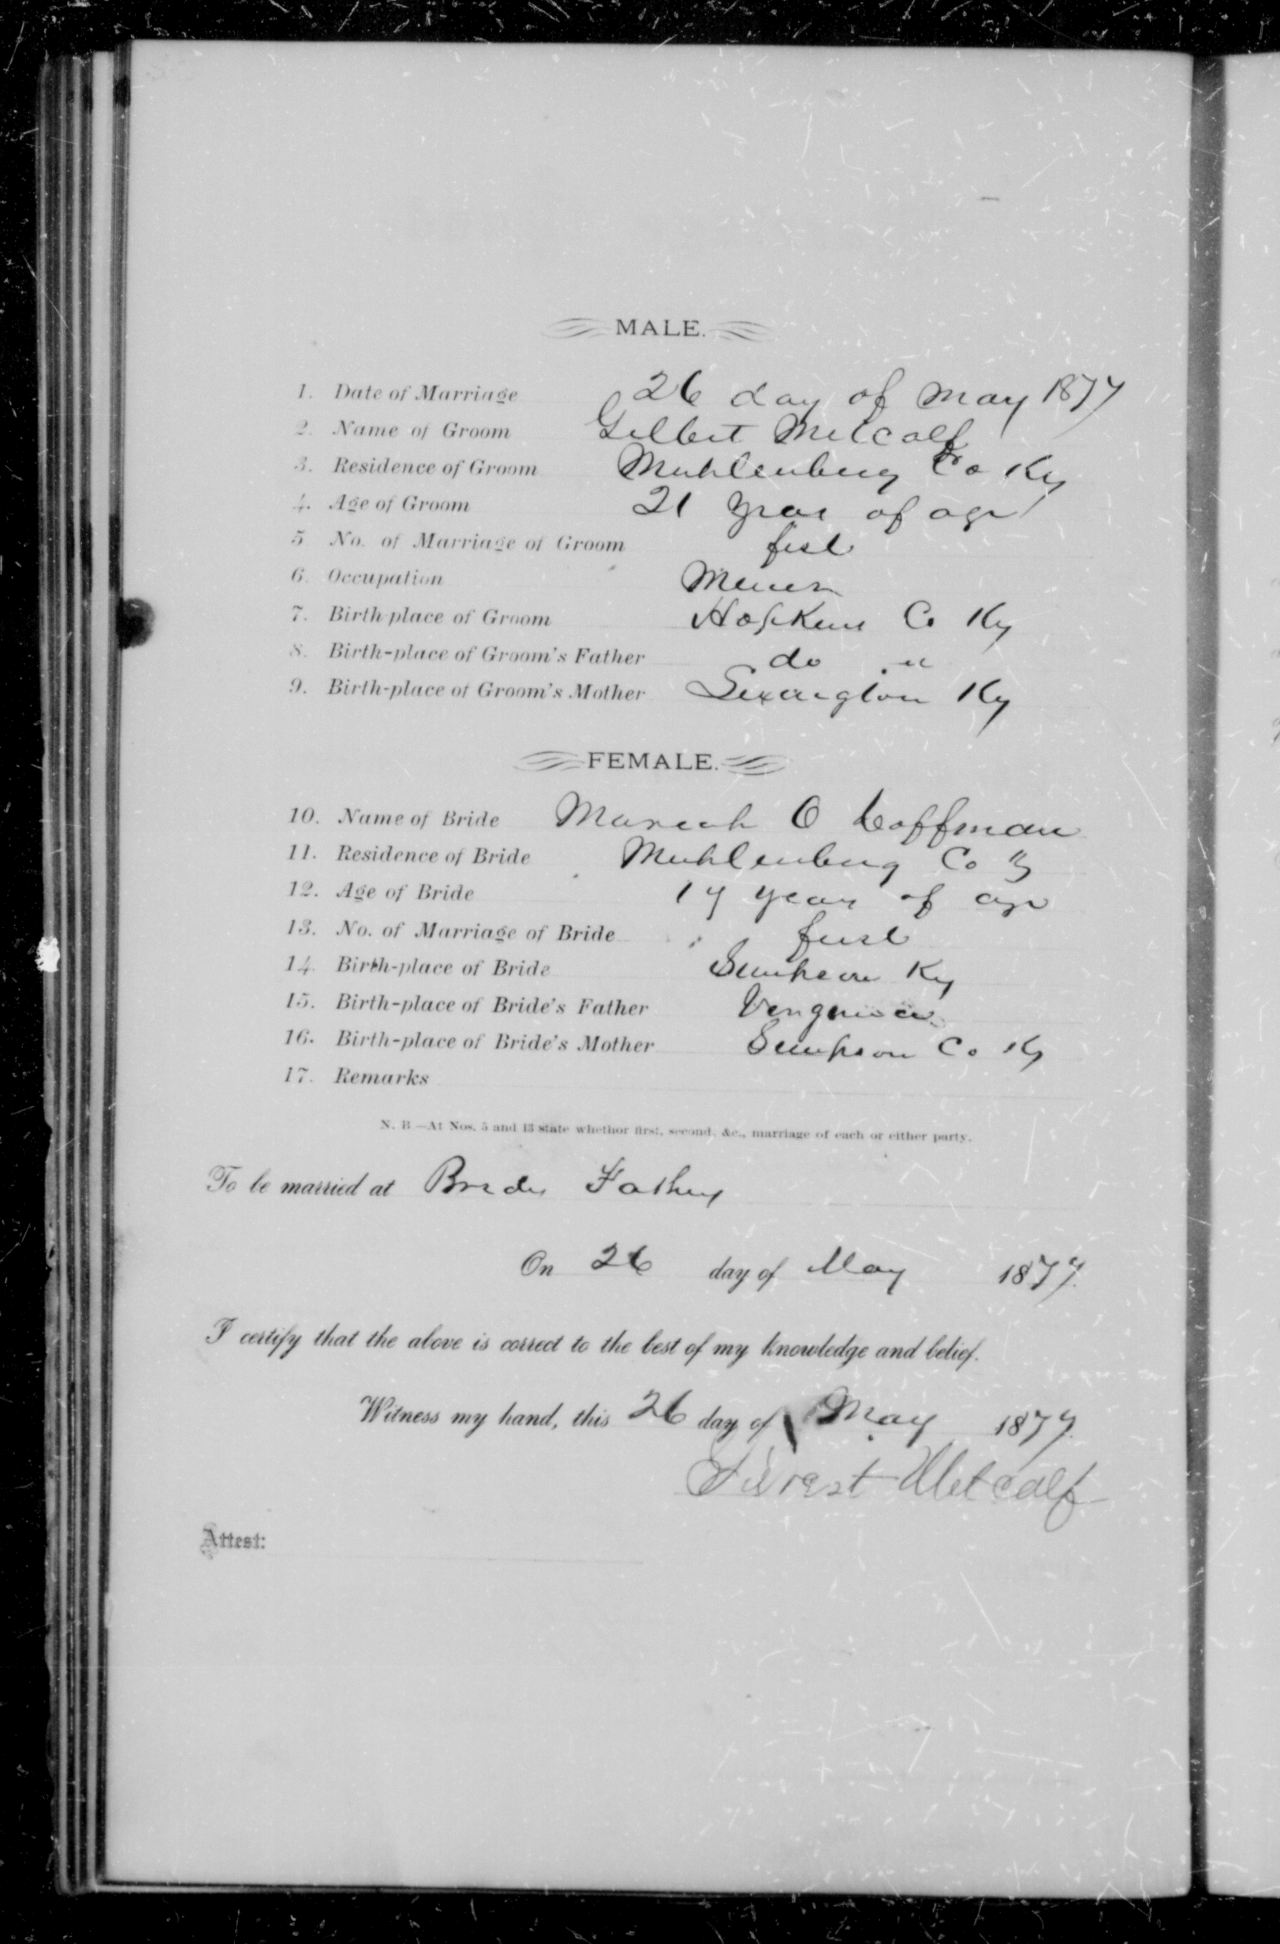 MALE.
1. Date of Marriage 26 day of May 1877
2. Name of Groom Gilbert Metcalf
3. Residence of Groom Muhlenberg Co Ky
4. Age of Groom 21 year of age
5 No. of Marriage of Groom first
6. Occupation Miner
7. Birth-place of Groom Hopkins Co Ky
8. Birth-place of Groom's Father do "
9. Birth-place of Groom's Mother Lexington Ky
FEMALE.
10. Name of Bride O Coffman
11. Residence of Bride Muhlenberg Co Ky
12. Age of Bride 17 year of age
13. No. of Marriage of Bride first
14. Birth-place of Bride Simpson Ky
15. Birth-place of Bride's Father Virginia
16. Birth-place of Bride's Mother Simpson Co Ky
17. Remarks
N. B.—At Nos. 5 and 13 state whether first, second, &c., marriage of each or either party.
To be married at Brides Fathers
On 26 day of May 1877.
I certify that the above is correct to the best of my knowledge and belief.
Witness my hand, this 26 day of May 1877.
Metcalf
Attest: